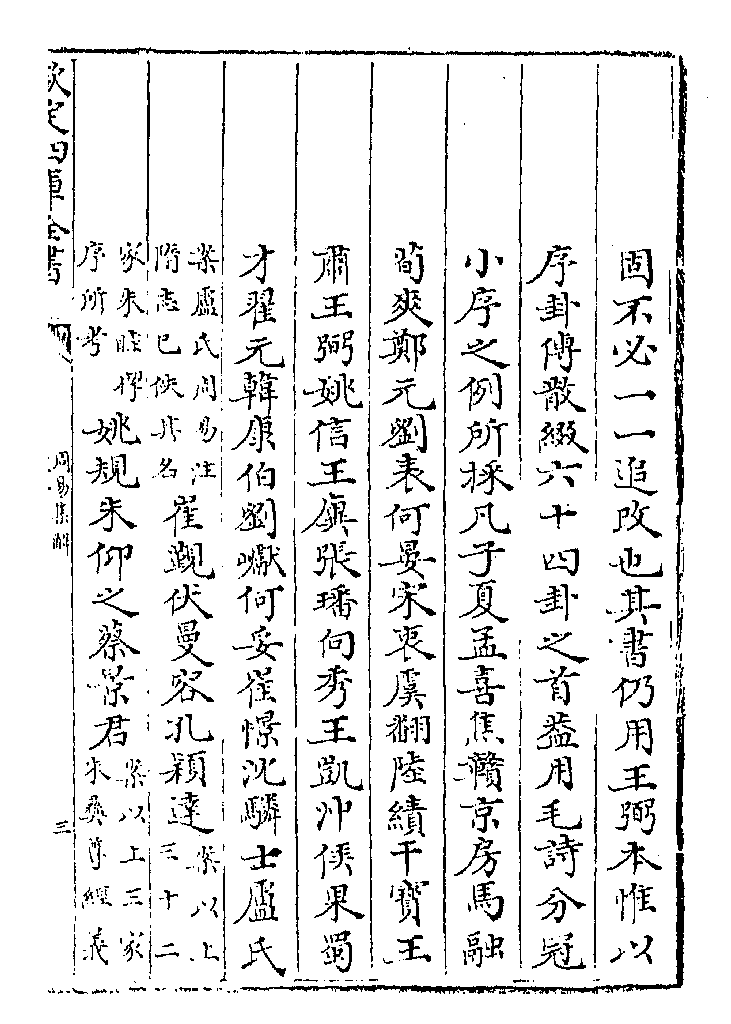 固不必一一追改也其書仍用王弼本惟以
序卦傳散綴六十四卦之首葢用毛詩分冠
小序之例所採凡子夏孟喜焦贛京房馬融
荀爽鄭元劉表何晏宋衷虞翻陸績干寶王
肅王弼姚信王廙張璠向秀王凱沖侯果蜀
才翟元韓康伯劉巘何妥崔憬沈驎士盧氏
案盧氏周易注
隋志已佚其名
崔覲伏曼容孔穎達
案以上
三十二
家朱睦㮮
序所考
姚規朱仰之蔡景君
案以上三家
朱彝尊經義
欽定四庫全書
周易集解
三